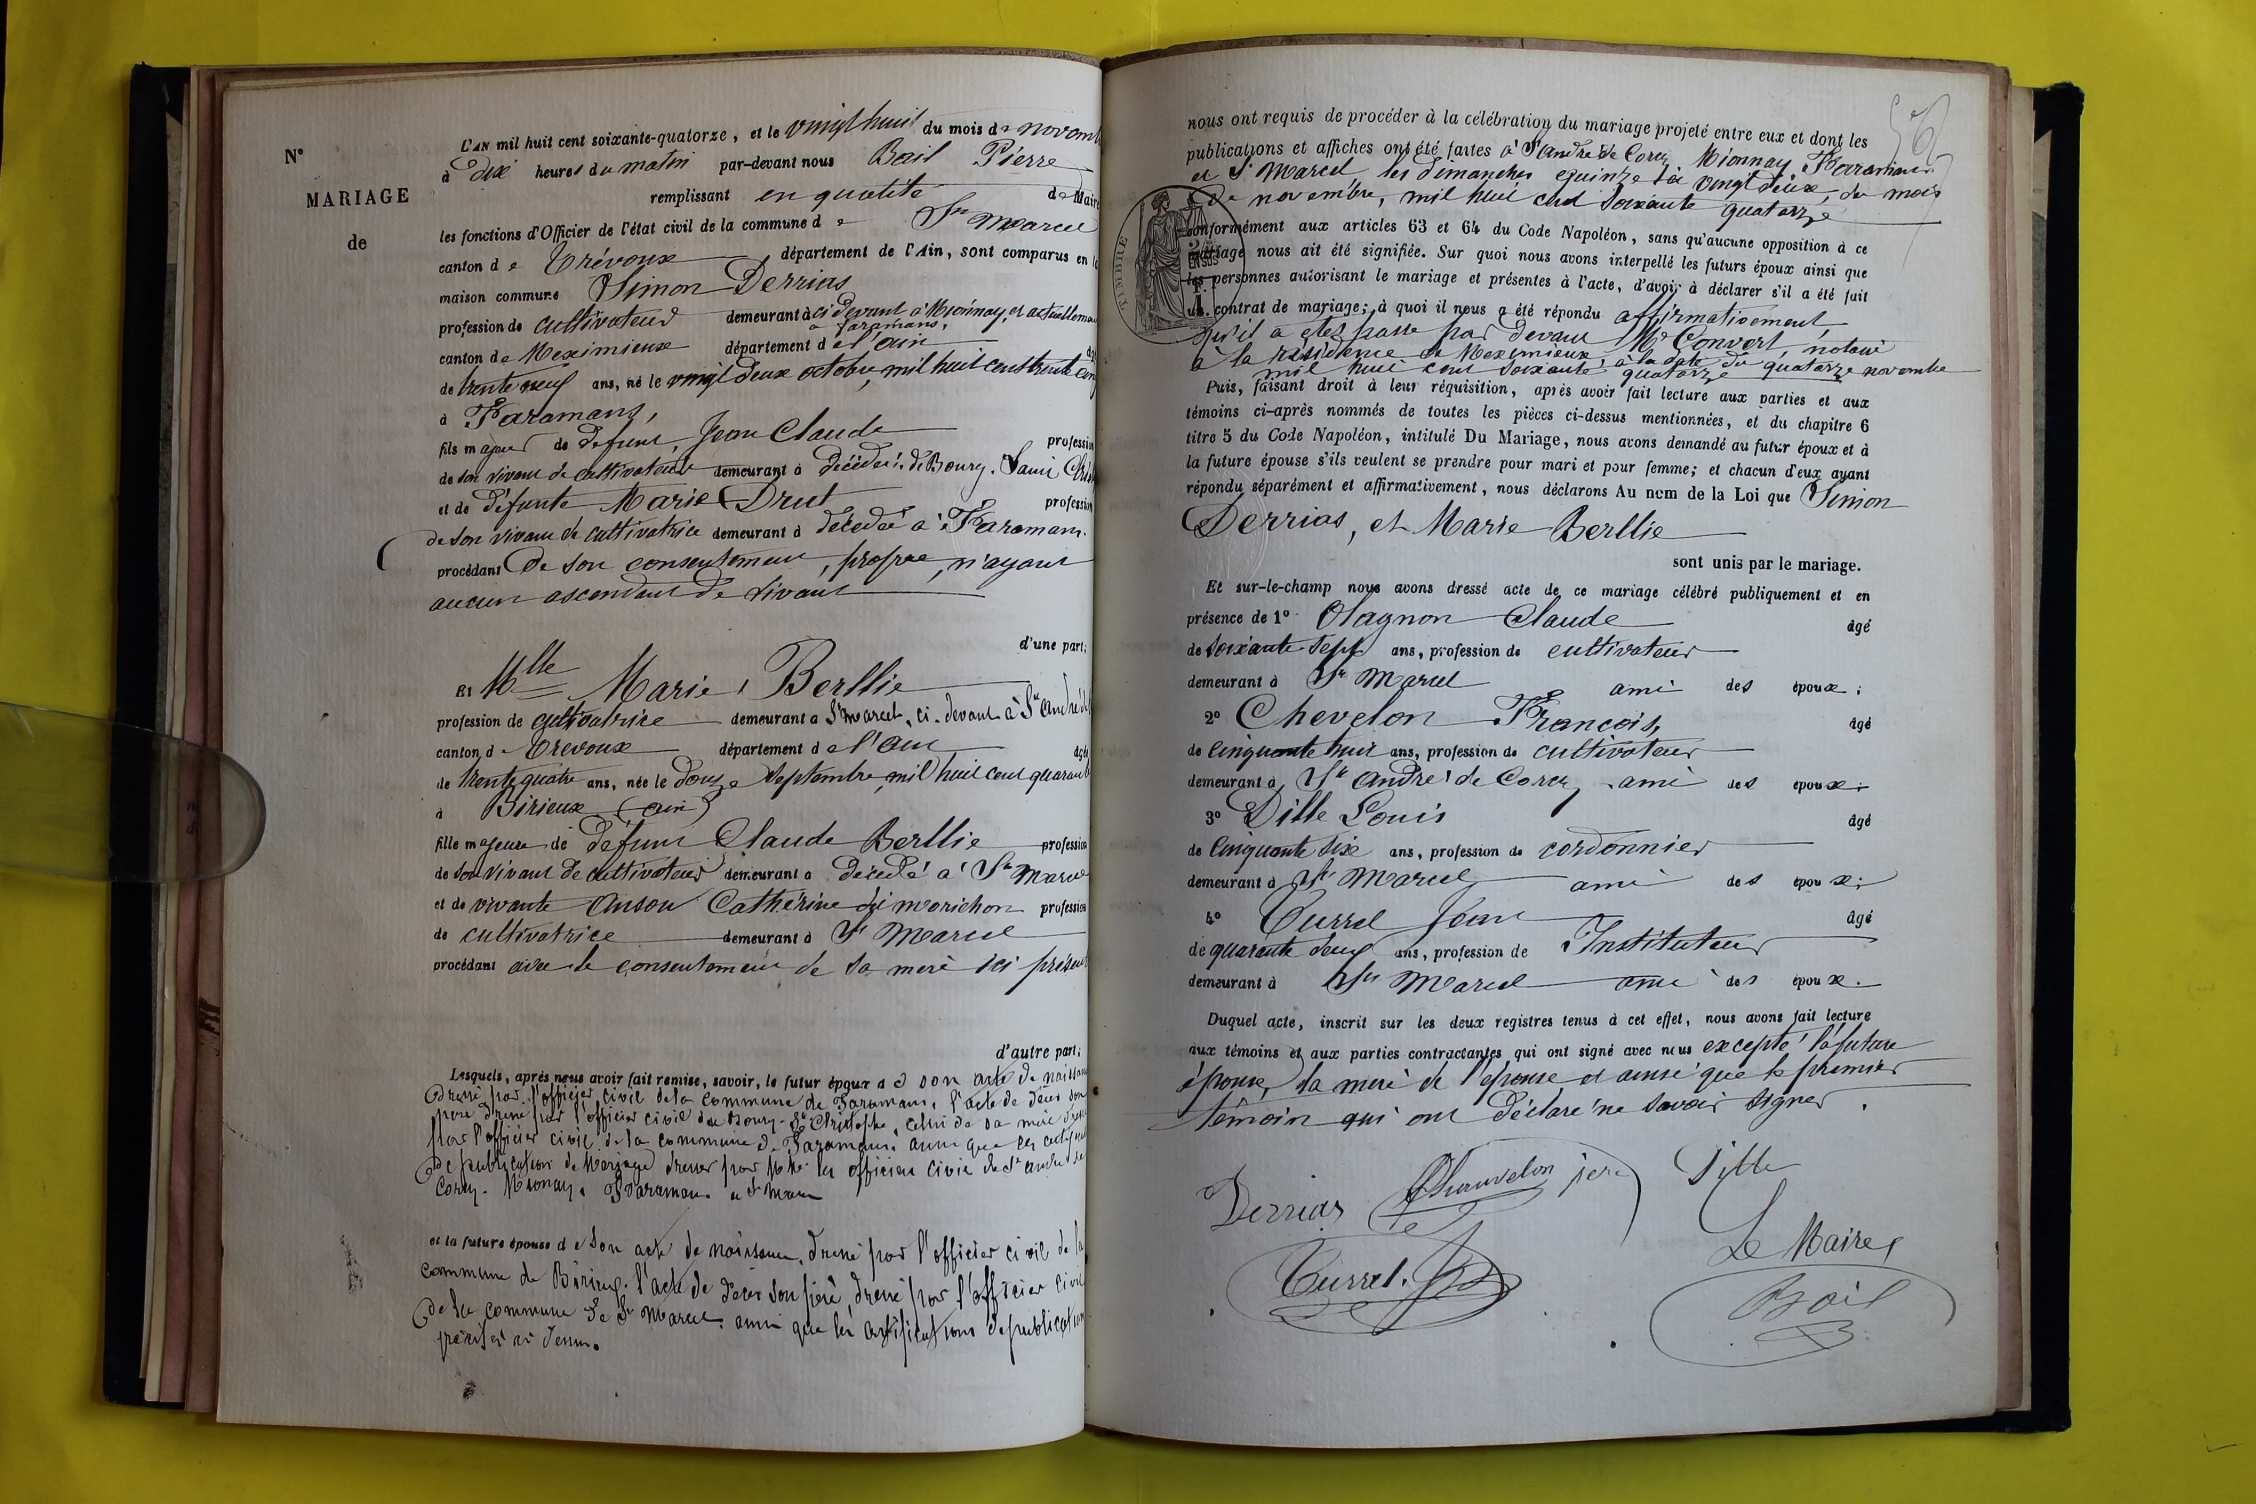 N°
MARIAGE
de
L'AN mil huit cent soixante-quatorze, et le vingt huit du mois de novemb
à dix heures du matin par-devant nous Bail Pierre
remplissant en qualité de Maire
les fonctions d'Officier de l'état civil de la commune de St Marcel
canton de Trévoux, département de l'Ain, sont comparus en la
maison commune Simon Derrias
profession de cultivateur demeurant à ci devant à Mionnay, et actuellemen
à faramans,
canton de Meximieux département de l'ain âgé
de trente neuf ans, né le vingt deux octobre, mil huit cent trente cinq
à Faramans,
fils majeur de défunt, Jean Claude profession
de son vivant de cultivateur demeurant à décédé à de Bourg. Saint Christ
et de défunte Marie Drut profession
de son vivant de cultivatrice demeurant à décédée à Faramans.
procédant de son consentement, propre, n'ayant
aucun ascendant de vivant
d'une part;
Et Mlle Marie Berllie
profession de cultivatrice demeurant à St Marcel, ci-devant à St André de
canton de Trévoux département de l'ain âgée
de trente quatre ans, née le douze septembre, mil huit cent quarante
à Birieux (ain)
fille majeure de défunt Claude Berllie profession
de son vivant de cultivateur demeurant à décédé à St Marcel
et de vivante Anson Catherine dit morichon profession
de cultivatrice demeurant à St Marcel
procédant avec le consentement de sa mère ici présent
d'autre part;
Lesquels, après nous avoir fait remise, savoir, le futur époux de son acte de naissan
dressé par l'officier civil de la commune de Faramans, l'acte de décès son
père dressé par l'officier civil de Bourg-St Christophe, celui de sa mère dressé
par l'officier civil de la commune de Faramans. ainsi que les certificats
de publication de Mariage dressés par MMrs les officiers civil de St André de
Corcy. Mionnay. Faramans. et St Marcel
et la future épouse de son acte de naissance, dressé par l'officier civil de la
commune de Birieux. l'acte de décès son père, dressé par l'officier civil
de la commune de St Marcel. ainsi que les certifications de publication
précités ci dessus.
nous ont requis de procéder à la célébration du mariage projeté entre eux et dont les
publications et affiches ont été faites à St André de Corcy, Mionnay, Faramans
et St Marcel, les dimanches quinze et vingt deux, du mois
de novembre, mil huit cent soixante quatorze
conformément aux articles 63 et 64 du Code Napoléon, sans qu'aucune opposition à ce
mariage nous ait été signifiée. Sur quoi nous avons interpellé les futurs époux ainsi que
les personnes autorisant le mariage et présentes à l'acte, d'avoir à déclarer s'il a été fait
un contrat de mariage; à quoi il nous a été répondu affirmativement,
qu'il a été passé par devant Me Convert, notaire
à la résidence de Meximieux, à la date du quatorze novembre
mil huit cent soixante quatorze
Puis, faisant droit à leur réquisition, après avoir fait lecture aux parties et aux
témoins ci-après nommés de toutes les pièces ci-dessus mentionnées, et du chapitre 6
titre 5 du Code Napoléon, intitulé Du Mariage, nous avons demandé au futur époux et à
la future épouse s'ils veulent se prendre pour mari et pour femme; et chacun d'eux ayant
répondu séparément et affirmativement, nous déclarons Au nom de la Loi que Simon
Derrias, et Marie Berllie
sont unis par le mariage.
Et sur-le-champ nous avons dressé acte de ce mariage célébré publiquement et en
présence de 1° Olagnon Claude âgé
de soixante sept ans, profession de cultivateur
demeurant à St Marcel ami des époux;
2° Chevelon François, âgé
de cinquante huit ans, profession de cultivateur
demeurant à St André de Corcy ami des époux;
3° Dille Louis âgé
de cinquante six ans, profession de cordonnier
demeurant à St Marcel ami des époux;
4° Turrel Jean âgé
de quarante deux ans, profession de Instituteur
demeurant à St Marcel ami des époux.
Duquel acte, inscrit sur les deux registres tenus à cet effet, nous avons fait lecture
aux témoins et aux parties contractantes qui ont signé avec nous excepté la future
épouse, la mère de l'épouse et ainsi que le premier
témoin qui ont déclaré ne savoir signer.
Derrias Chauvelon père Dille
Turrel. Le Maire,
Bail
TIMBRE